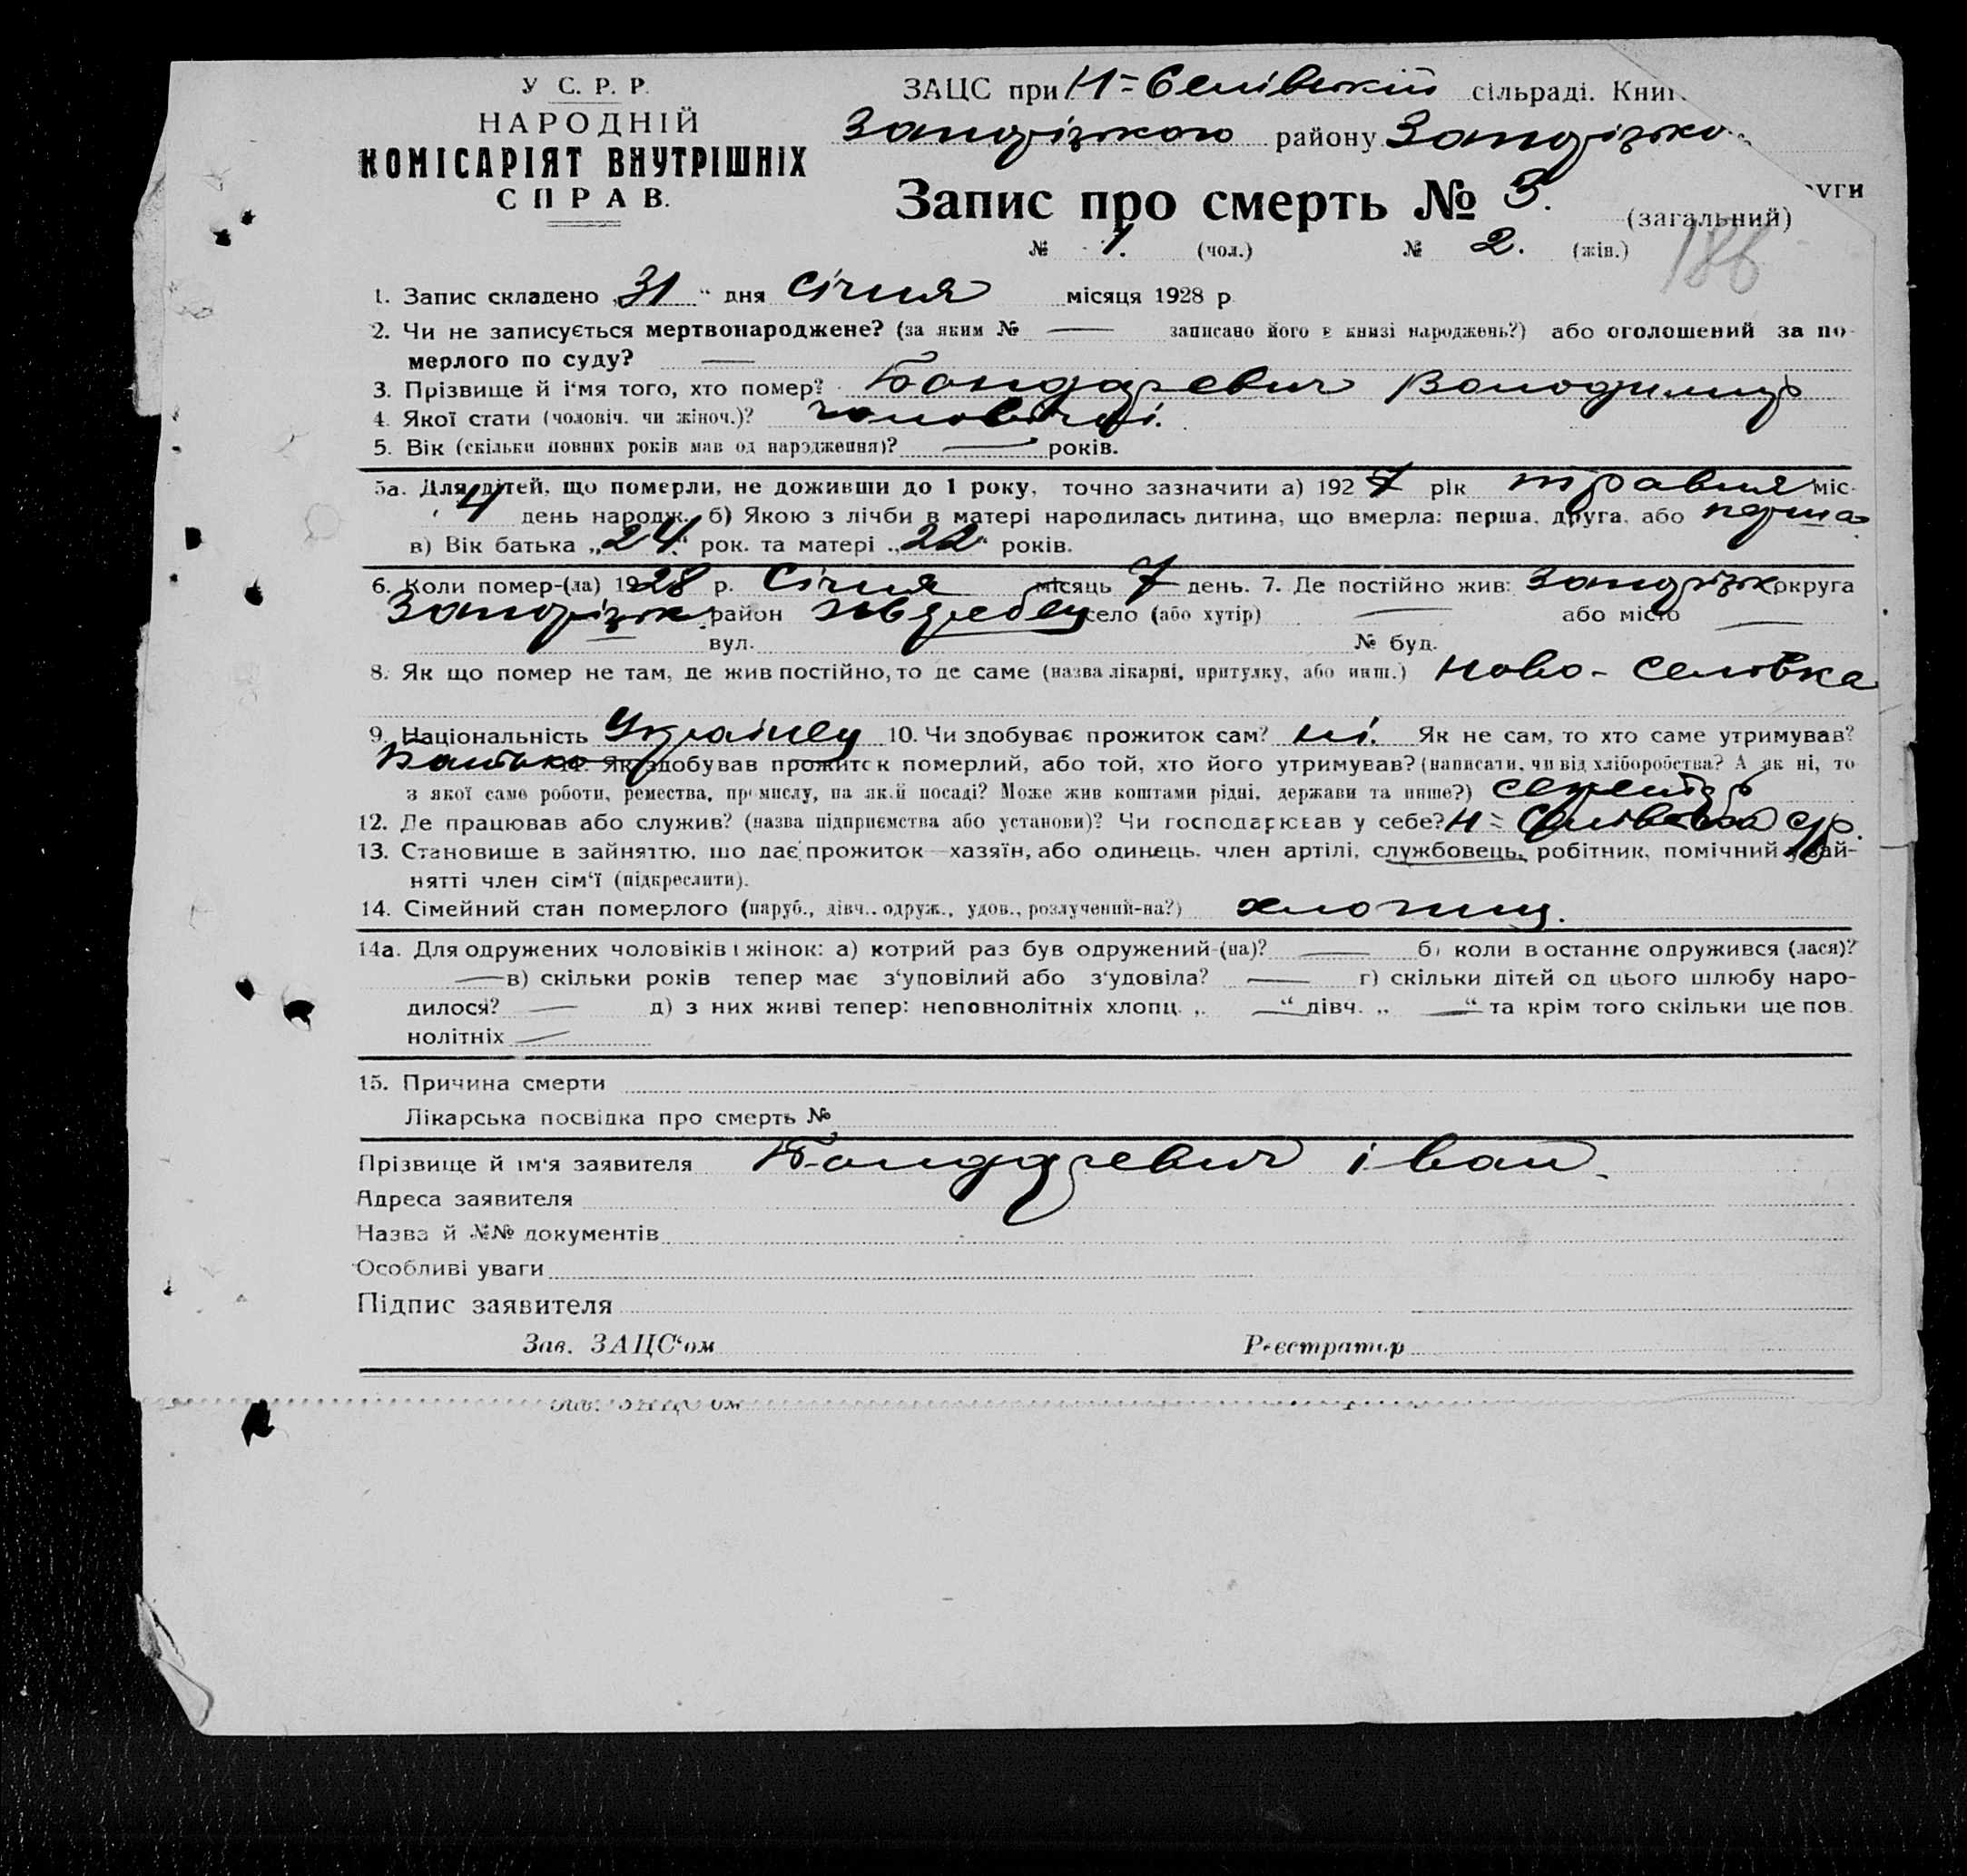 У С. Р. Р.
НАРОДНІЙ
КОМІСАРІЯТ ВНУТРІШНІХ
СПРАВ.
ЗАЦС при Н=Селівській сільраді. Книг
Запорізького району Запорізько
руги
Запис про смерть № 3. (загальний)
№ 1. (чол.) № 2. (жін.)
188
1. Запис складено „31" дня Січня місяця 1928 р
2. Чи не записується мертвонароджене? (за яким № — записано його в книзі народжень?) або оголошений за по-
мерлого по суду? —
3. Прізвище й і'мя того, хто помер? Бондаревич Володимир
4. Якої стати (чоловіч. чи жіноч.)? чоловічої.
5. Вік (скільки повних років мав од народження)? — років.
5а. Для дітей, що померли, не доживши до 1 року, точно зазначити а) 1927 рік травня міс-
4 день народж. б) Якою з лічби в матері народилась дитина, що вмерла: перша, друга, або перша
в) Вік батька „24" рок. та матері „22" років.
6. Коли помер-(ла) 1928 р. Січня місяць 7 день. 7. Де постійно жив: Запорізьк округа
Запорізьк район село (або хутір) — або місто —
вул. № буд.
8. Як що помер не там, де жив постійно, то де саме (назва лікарні, притулку, або инш.) Ново-Селовка
9. Національність Українец 10. Чи здобуває прожиток сам? ні. Як не сам, то хто саме утримував?
Батько 11. Як здобував прожиток померлий, або той, хто його утримував? (написати, чи від хліборобства? А як ні, то
з якої саме роботи, ремества, промислу, на якій посаді? Може жив коштами рідні, держави та инше?) секретар
12. Де працював або служив? (назва підприємства або установи)? Чи господарював у себе? Н=Селівська с/р.
13. Становище в зайняттю, що дає прожиток—хазяїн, або одинець, член артілі, службовець, робітник, помічний у зай-
нятті член сім'ї (підкреслити).
14. Сімейний стан померлого (паруб., дівч., одруж., удов., розлучений-на?) хлопчиц.
14а. Для одружених чоловіків і жінок: а) котрий раз був одружений-(на)? — б) коли востаннє одружився (лася)?
— в) скільки років тепер має з'уповілий або з'удовіла? — г) скільки дітей од цього шлюбу наро-
дилося? — д) з них живі тепер: неповнолітніх хлопц. „ —" дівч. „ —" та крім того скільки ще пов.
нолітніх —
15. Причина смерти
Лікарська посвідка про смерть №
Прізвище й ім'я заявителя Бондаревич Іван.
Адреса заявителя
Назва й №№ документів
Особливі уваги
Підпис заявителя
Зав. ЗАЦС'ом Реєстратор
Зав. ЗАЦС'ом